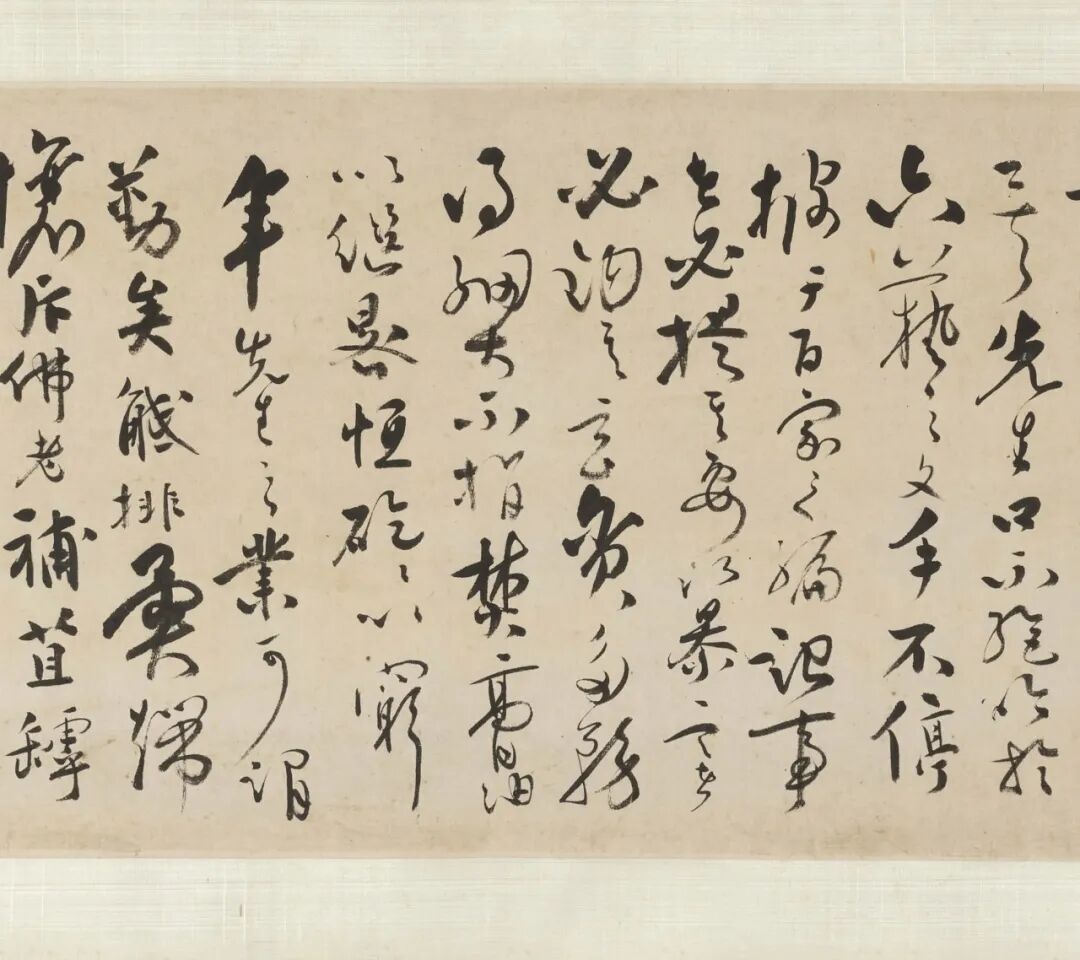 年矣先生口不絕吟於
六藝之文手不停
披于百家之編記事
者必提其要纂言者
必鉤其玄貪多務
得細大不捐焚膏油
以繼晷恒矻矻以窮
年先生之業可謂
勤矣觝排異端
攘斥佛老補苴罅